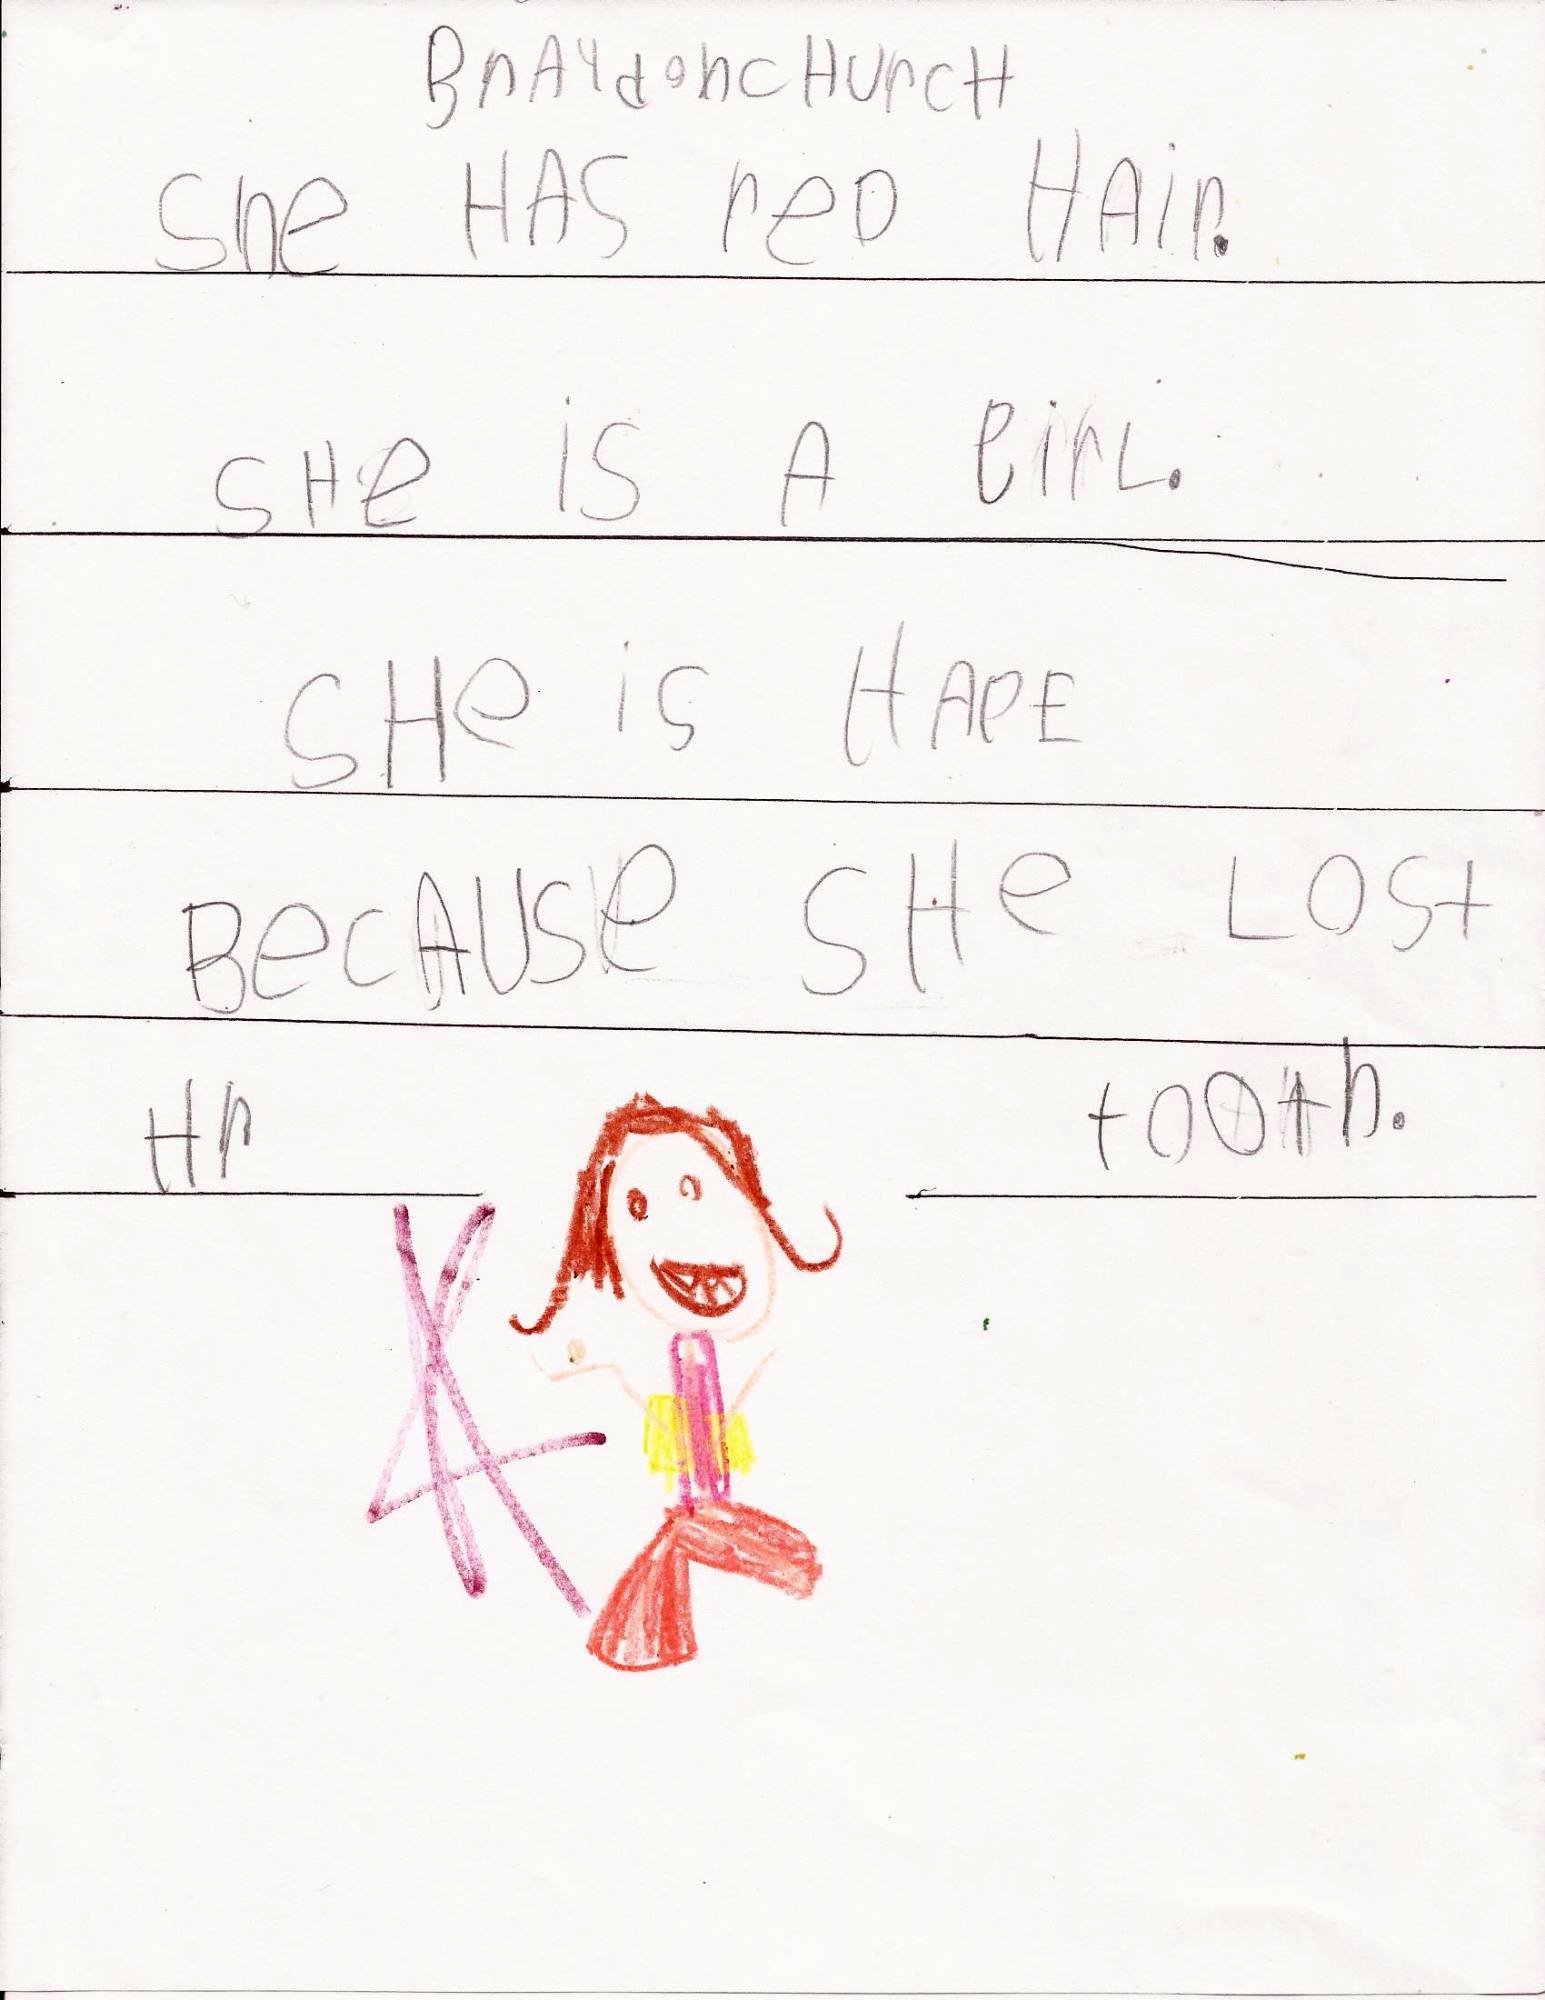 BrAYdonCHUrCH
SHe HAS reD HAir.
SHe iS A GirL.
SHe iS HAPE
BeCAUSe SHe LOSt
Hr tOOth.
K